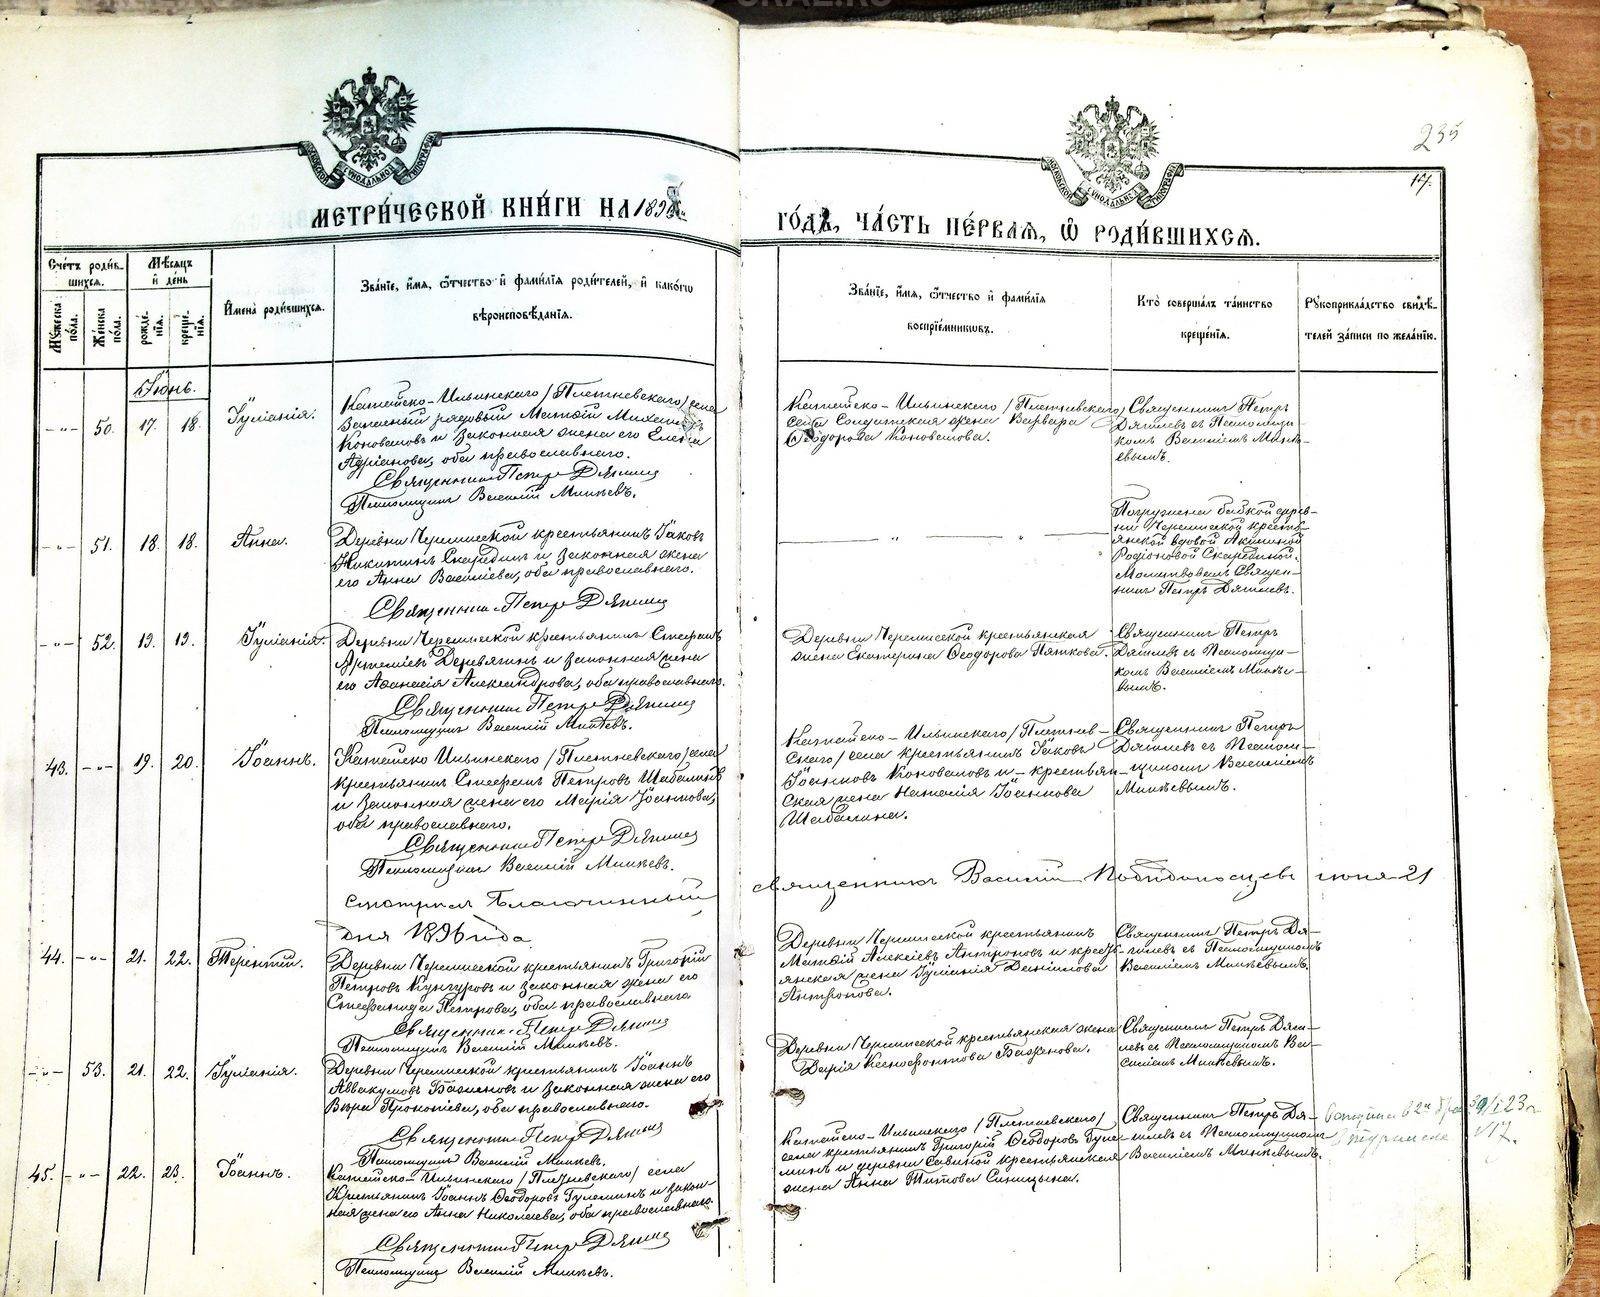 235
17.
МЕТРИ́ЧЕСКОЙ КНИ́ГИ НА 1896
ГО́ДЪ, ЧА́СТЬ ПЕ́РВАЯ, Ѽ РОДИ́ВШИХСЯ.
Сче́тъ роди́вшихся.
Мѣ́сяцъ и де́нь
Му́жеска по́ла.
Же́нска по́ла.
рожде́нія.
креще́нія.
И҆мена̀ роди́вшихся.
Зва́ніе, и҆́мя, ѻ҆́тчество и҆ фами́лія роди́телей, и҆ како́гѡ
вѣроисповѣ́данія.
Зва́ніе, и҆́мя, ѻ҆́тчество и҆ фами́лія
воспріе́мникѡвъ.
Кто̀ соверша́лъ та́инство
креще́нія.
Рукоприкла́дство свидѣ́-
телей за́писи по жела́нію.
Іюнь.
50. 17. 18. Іуліанія.
Катайско-Ильинскаго /Плетневскаго/ села
Запасный рядовый Матѳій
Коноваловъ и законная жена его Елена
Адріанова, оба православнаго.
Священникъ Петръ Дягилевъ
Псаломщикъ Василій Микѣевъ.
Катайско-Ильинскаго /Плетневскаго/
села Солдатская жена Варвара
Ѳеодорова Коновалова.
Священникъ Петръ
Дягилевъ съ Псаломщи-
комъ Василіемъ Микѣ-
евымъ.
51. 18. 18. Анна.
Деревни Черемисской крестьянинъ Іаковъ
Никитинъ Скарединъ и законная жена
его Анна Василіева, оба православнаго.
Священникъ Петръ Дягилевъ
Погружена бабкой дерев-
ни Черемисской кресть-
янской вдовой Акилиной
Родіоновой Скарединой.
Молитвовалъ Священ-
никъ Петръ Дягилевъ.
52. 19. 19. Іуліанія.
Деревни Черемисской крестьянинъ Стефанъ
Артеміевъ Деревягинъ и законная жена
его Аѳанасія Александрова, оба православнаго.
Священникъ Петръ Дягилевъ
Псаломщикъ Василій Микѣевъ.
Деревни Черемисской крестьянская
жена Екатерина Ѳеодорова Пяткова.
Священникъ Петръ
Дягилевъ съ Псаломщи-
комъ Василіемъ Микѣе-
вымъ.
43. 19. 20. Іоаннъ.
Катайско Ильинскаго /Плетневскаго/ села
крестьянинъ Стефанъ Петровъ Шабалинъ
и законная жена его Марія Іоаннова,
оба православнаго.
Священникъ Петръ Дягилевъ
Псаломщикъ Василій Микѣевъ.
Катайско-Ильинскаго /Плетнев-
скаго/ села крестьянинъ Іаковъ
Іоанновъ Коноваловъ и крестьян-
ская жена Наталія Іоаннова
Шабалина.
Священникъ Петръ
Дягилевъ съ Псалом-
щикомъ Василіемъ
Микѣевымъ.
Смотрѣлъ Благочинный священникъ Василій Побѣдоносцевъ іюня 21
дня 1896 года
44. 21. 22. Терентій.
Деревни Черемисской крестьянинъ Григорій
Петровъ Кунгуровъ и законная жена его
Стефанида Петрова, оба православнаго
Священникъ Петръ Дягилевъ
Псаломщикъ Василій Микѣевъ.
Деревни Черемисской крестьянинъ
Матѳій Алексіевъ Антроповъ и кресть-
янская жена Іуліанія Даніилова
Антропова.
Священникъ Петръ Дя-
гилевъ съ Псаломщикомъ
Василіемъ Микѣевымъ.
53. 21. 22. Іуліанія.
Деревни Черемисской крестьянинъ Іоаннъ
Аввакумовъ Баженовъ и законная жена его
Вѣра Прокопіева, оба православнаго.
Священникъ Петръ Дягилевъ
Псаломщикъ Василій Микѣевъ.
Деревни Черемисской крестьянская жена
Дарія Ксенофонтова Баженова.
Священникъ Петръ Дяги-
левъ съ Псаломщикомъ Ва-
силіемъ Микѣевымъ.
45. 22. 23. Іоаннъ.
Катайско-Ильинскаго /Плетневскаго/ села
Крестьянинъ Іоаннъ Ѳеодоровъ Гулеминъ и закон-
ная жена его Анна Николаева, оба православнаго.
Священникъ Петръ Дягилевъ
Псаломщикъ Василій Микѣевъ.
Катайско-Ильинскаго /Плетневскаго/
села крестьянинъ Григорій Ѳеодоровъ Гуле-
минъ и деревни Савиной крестьянская
жена Анна Титова Синицына.
Священникъ Петръ Дя-
гилевъ съ Псаломщикомъ
Василіемъ Микѣевымъ.